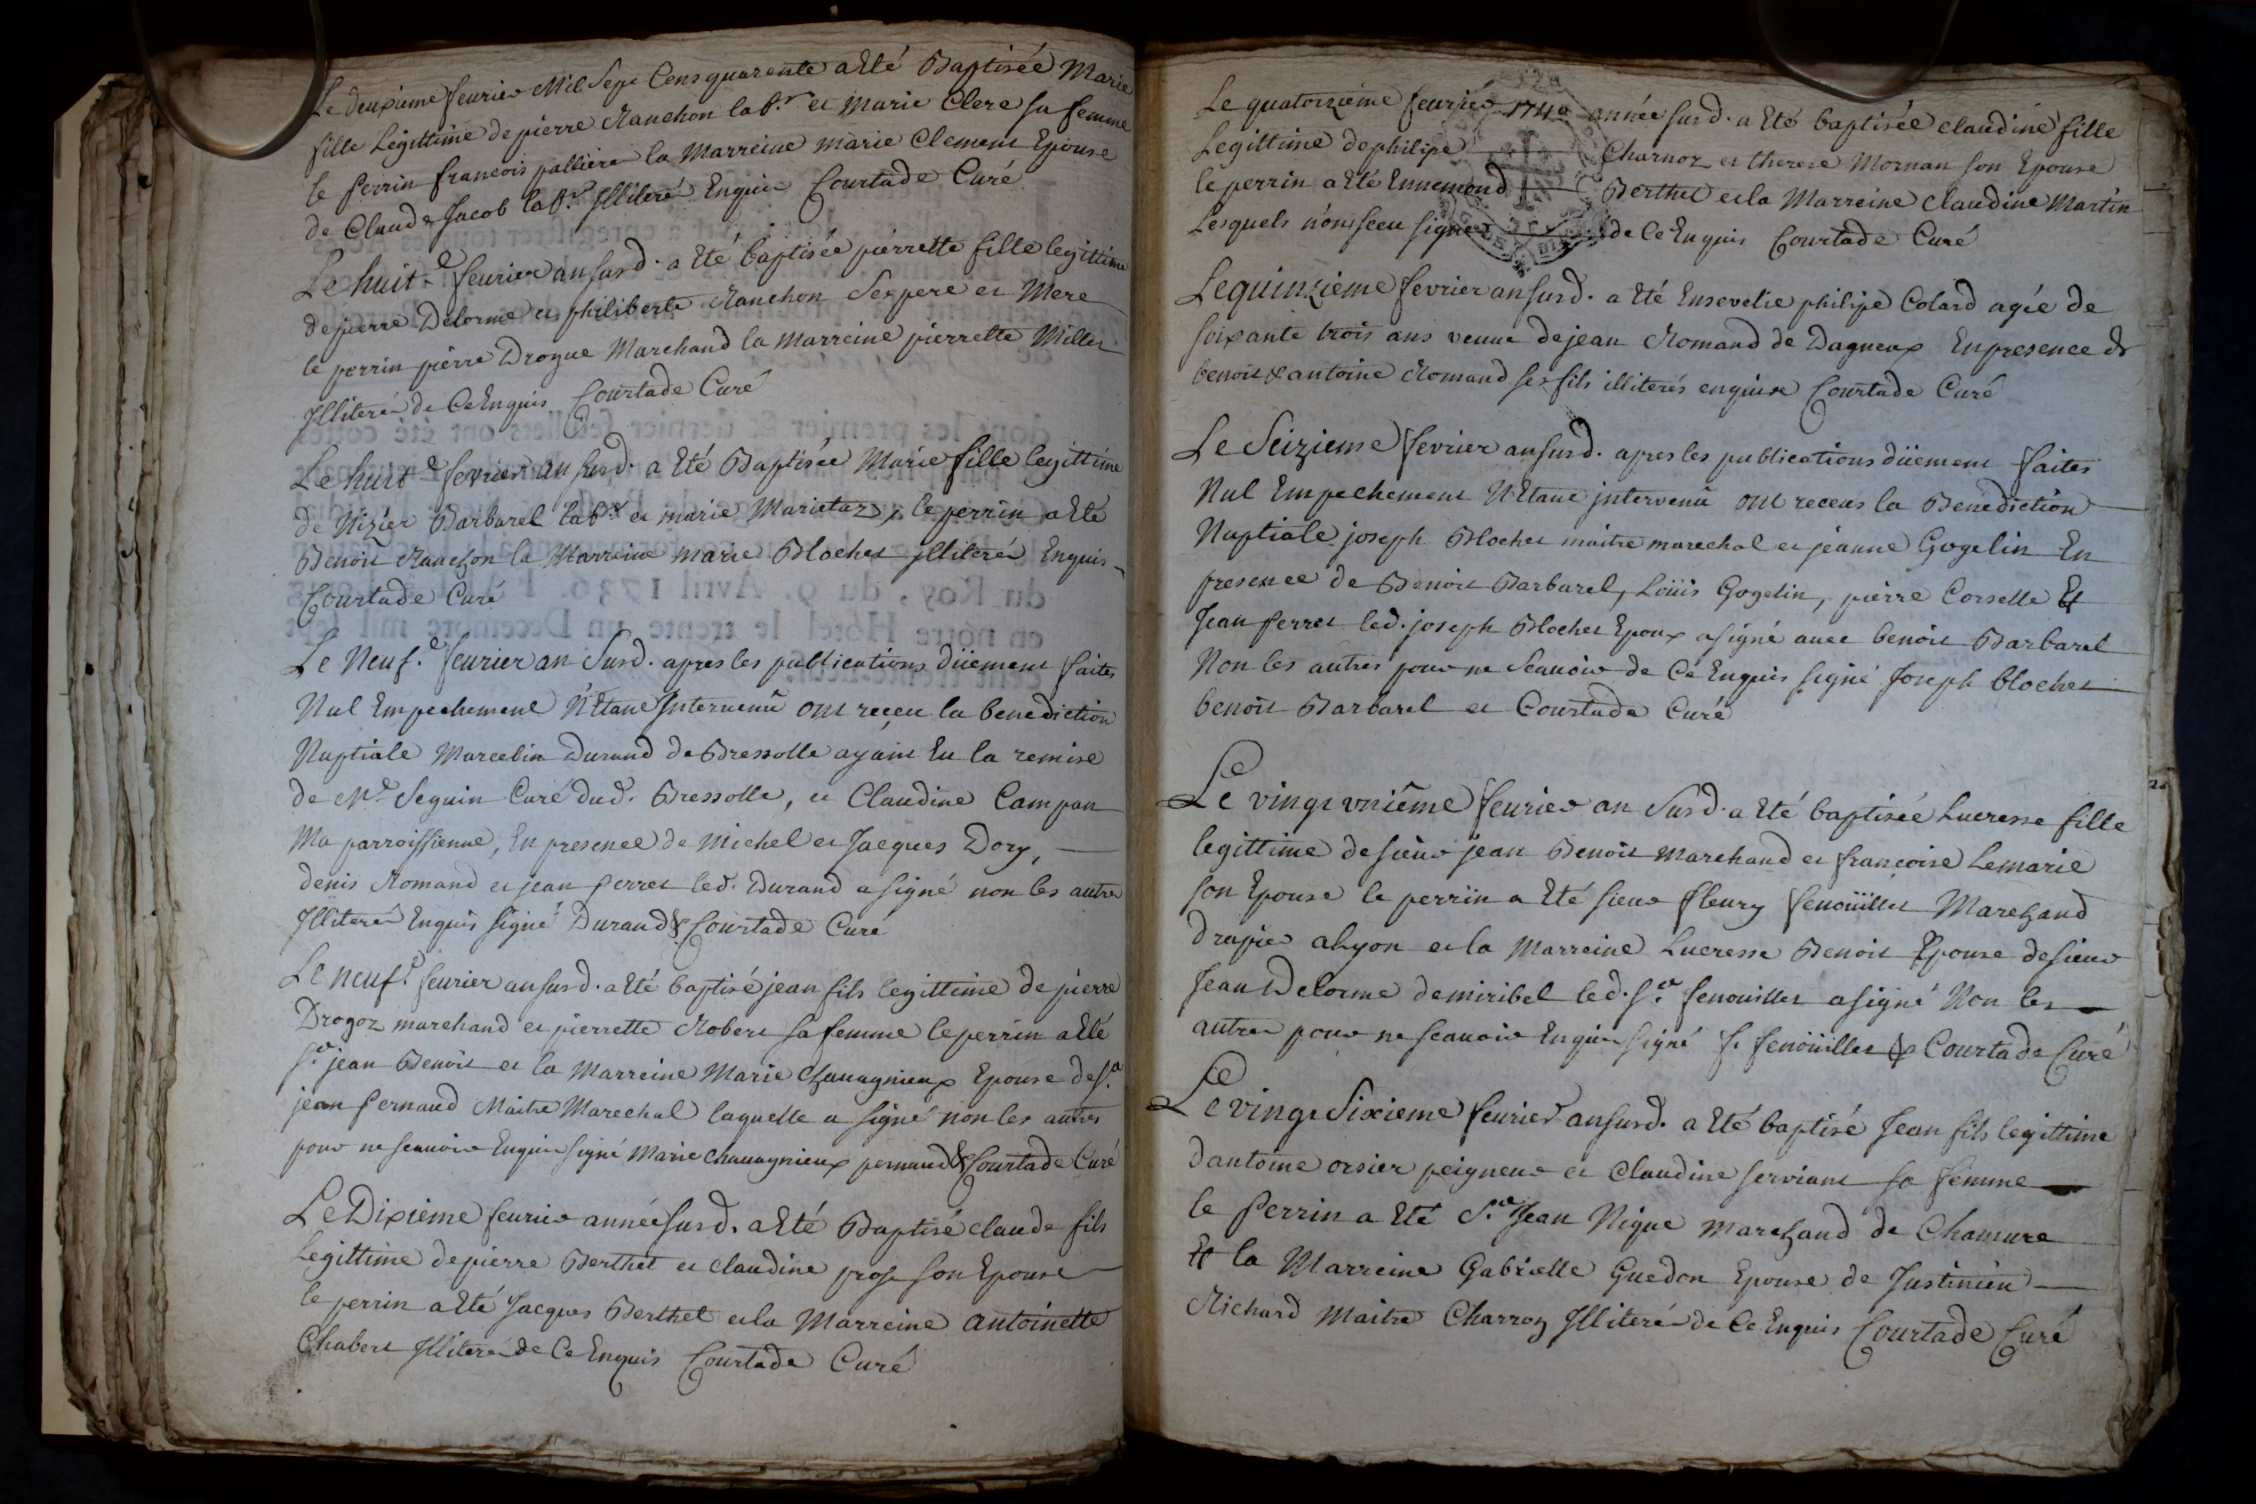 Le deuxieme feurier Mil Sept Cens quarente a Eté Baptisée Marie
fille Legittime de pierre Ranchon lab.r et Marie Clere sa femme
le Perrin francois palliere la Marreine marie Clement Epouse
de Claude Jacob lab.r Illiteré Enquis Courtade Curé
Le huit.e feurier an susd. a Eté baptisée pierrette fille legittime
de pierre Delorme et philiberte Ranchon Ses pere et Mere
le perrin pierre Drogue Marchand la marreine pierrette Millet
Illiteré de Ce Enquis Courtade Curé
Le huit.e fevrier an susd. a Eté Baptisée Marie fille legittime
de Nizier Barbarel lab.r et marie Marietaz, le perrin a Eté
Benoit Ranchon la Marreine marie Blochet illiteré Enquis
Courtade Curé
Le Neuf.e feurier an Susd. apres les publications düement faites
Nul Empechement N'Etant Intervenû ont receu la benediction
Nuptiale Marcelin Durand de Bressolle ayant Eu la remise
de Mr. Seguin Curé dud. Bressolle, et Claudine Campan
Ma parroissienne, En presence de Michel et Jacques Dory,
denis Romand et jean perret led. Durand a signé non les autre
Illiteré Enquis signé Durand & Courtade Curé
Le neuf.e feurier an susd. a Eté baptisé jean fils legittime de pierre
Drogoz marchand et pierrette Robert sa femme le perrin a Eté
s.r jean Benoit et la Marreine Marie Chauagnieux Epouse de s.r
jean pernaud Maitre Marechal laquelle a signé non les autres
pour ne scauoir Enquis signé Marie Chauagnieux pernaud & Courtade Curé
Le Dixieme feurier année susd. a Eté Baptisé claude fils
Legittime de pierre Berthet et claudine prost son Epouse
le perrin a Eté Jacques Berthet et la Marreine antoinette
Chabert Illiteré de Ce Enquis Courtade Curé
Le quatorzieme feurier 1740 année susd. a Eté baptisée claudine fille
Legittime de philipe Charnoz et therese Mornan son Epouse
le perrin a Eté Ennemond Berthet et la Marreine Claudine Martin
Lesquels n'ont sceu signer de Ce Enquis Courtade Curé
Le quinzieme fevrier an susd. a Eté Ensevelie philipe Colard agée de
soixante trois ans veuue de jean Romand de Dagneux En presence de
benoit & antoine Romand ses fils illiterés enquis Courtade Curé
Le Seizieme fevrier an susd. apres les publications düement faites
Nul Empechement N'Etant intervenû ont receus la Benediction
Nuptiale joseph Blochet maitre marechal et jeanne Gogelin En
presence de Benoit Barbarel, Loüis Gogelin, pierre Corselle Et
Jean perret led. joseph Blochet Epoux a signé auec benoit Barbarel
Non les autres pour ne Scauoir de Ce Enquis signé Joseph blochet
benoit Barbarel et Courtade Curé
Le vingt vniême feurier an Susd. a Eté baptisée Lucresse fille
legittime de sieur jean Benoit marchand et francoise Lemarie
son Epouse le perrin a Eté sieur fleury fenoüillet Marchand
drapier a Lyon et la Marreine Lucresse Benoit Epouse de sieur
Jean Delorme de miribel led. s.r fenouillet a signé Non les
autres pour ne scauoir Enquis signé f. fenoüillet & Courtade Curé
Le vingt Sixieme feurier an susd. a Eté baptisé Jean fils legittime
dantoine orsier peigneur et Claudine serviant sa femme
le Perrin a Eté S.r Jean Nique marchand de Chamure
Et la Marreine Gabrielle Guedon Epouse de Justinien
Richard Maitre Charron Illiteré de Ce Enquis Courtade Curé